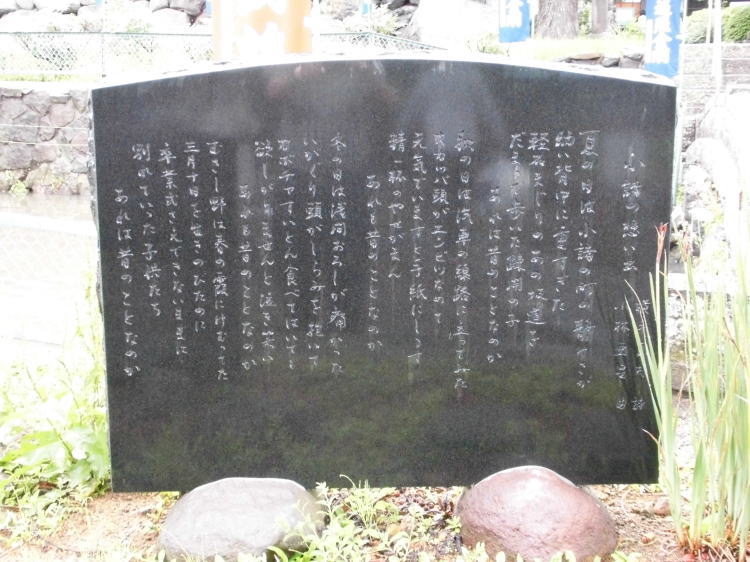 小諸の想出
林 曲
夏の日は小諸の町の駅でさが
幼い背中に重すぎた
軽石まじりのあの坂道を
だまって歩いた疎開の子
あれは昔のことなのか
秋の日は汽車の線路に立ってみた
頭がエンピツなめて
元気でいますと手紙にしるす
精一杯のやせがまん
あれも昔のことなのか
冬の日は浅間おろしが寒かった
いがぐり頭がしらみを抱いて
カボチャすいとん食べてはいても
欲しがりませんと泣き笑い
あれも昔のことなのか
むさし野は春の霞にけむってた
三月十日を生きのびたのに
卒業式さえできないままに
別れていった子供たち
あれは昔のことなのか